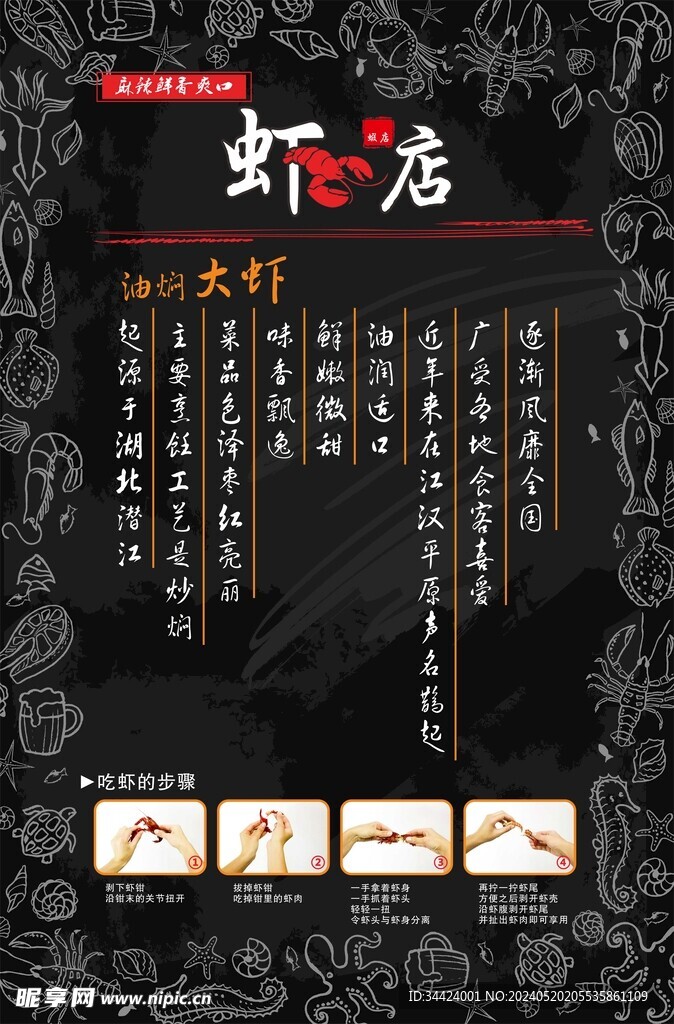 麻辣鲜香爽口
虾店
蝦店
油焖大虾
起源于湖北潜江
主要烹饪工艺是炒焖
菜品色泽枣红亮丽
味香飘逸
鲜嫩微甜
油润适口
近年来在江汉平原声名鹊起
广受各地食客喜爱
逐渐风靡全国
▶吃虾的步骤
①
②
③
④
剥下虾钳
沿钳末的关节扭开
拔掉虾钳
吃掉钳里的虾肉
一手拿着虾身
一手抓着虾头
轻轻一扭
令虾头与虾身分离
再拧一拧虾尾
方便之后剥开虾壳
沿虾腹剥开虾尾
并扯出虾肉即可享用
昵享网 www.nipic.cn
ID:34424001 NO:20240520205535861109